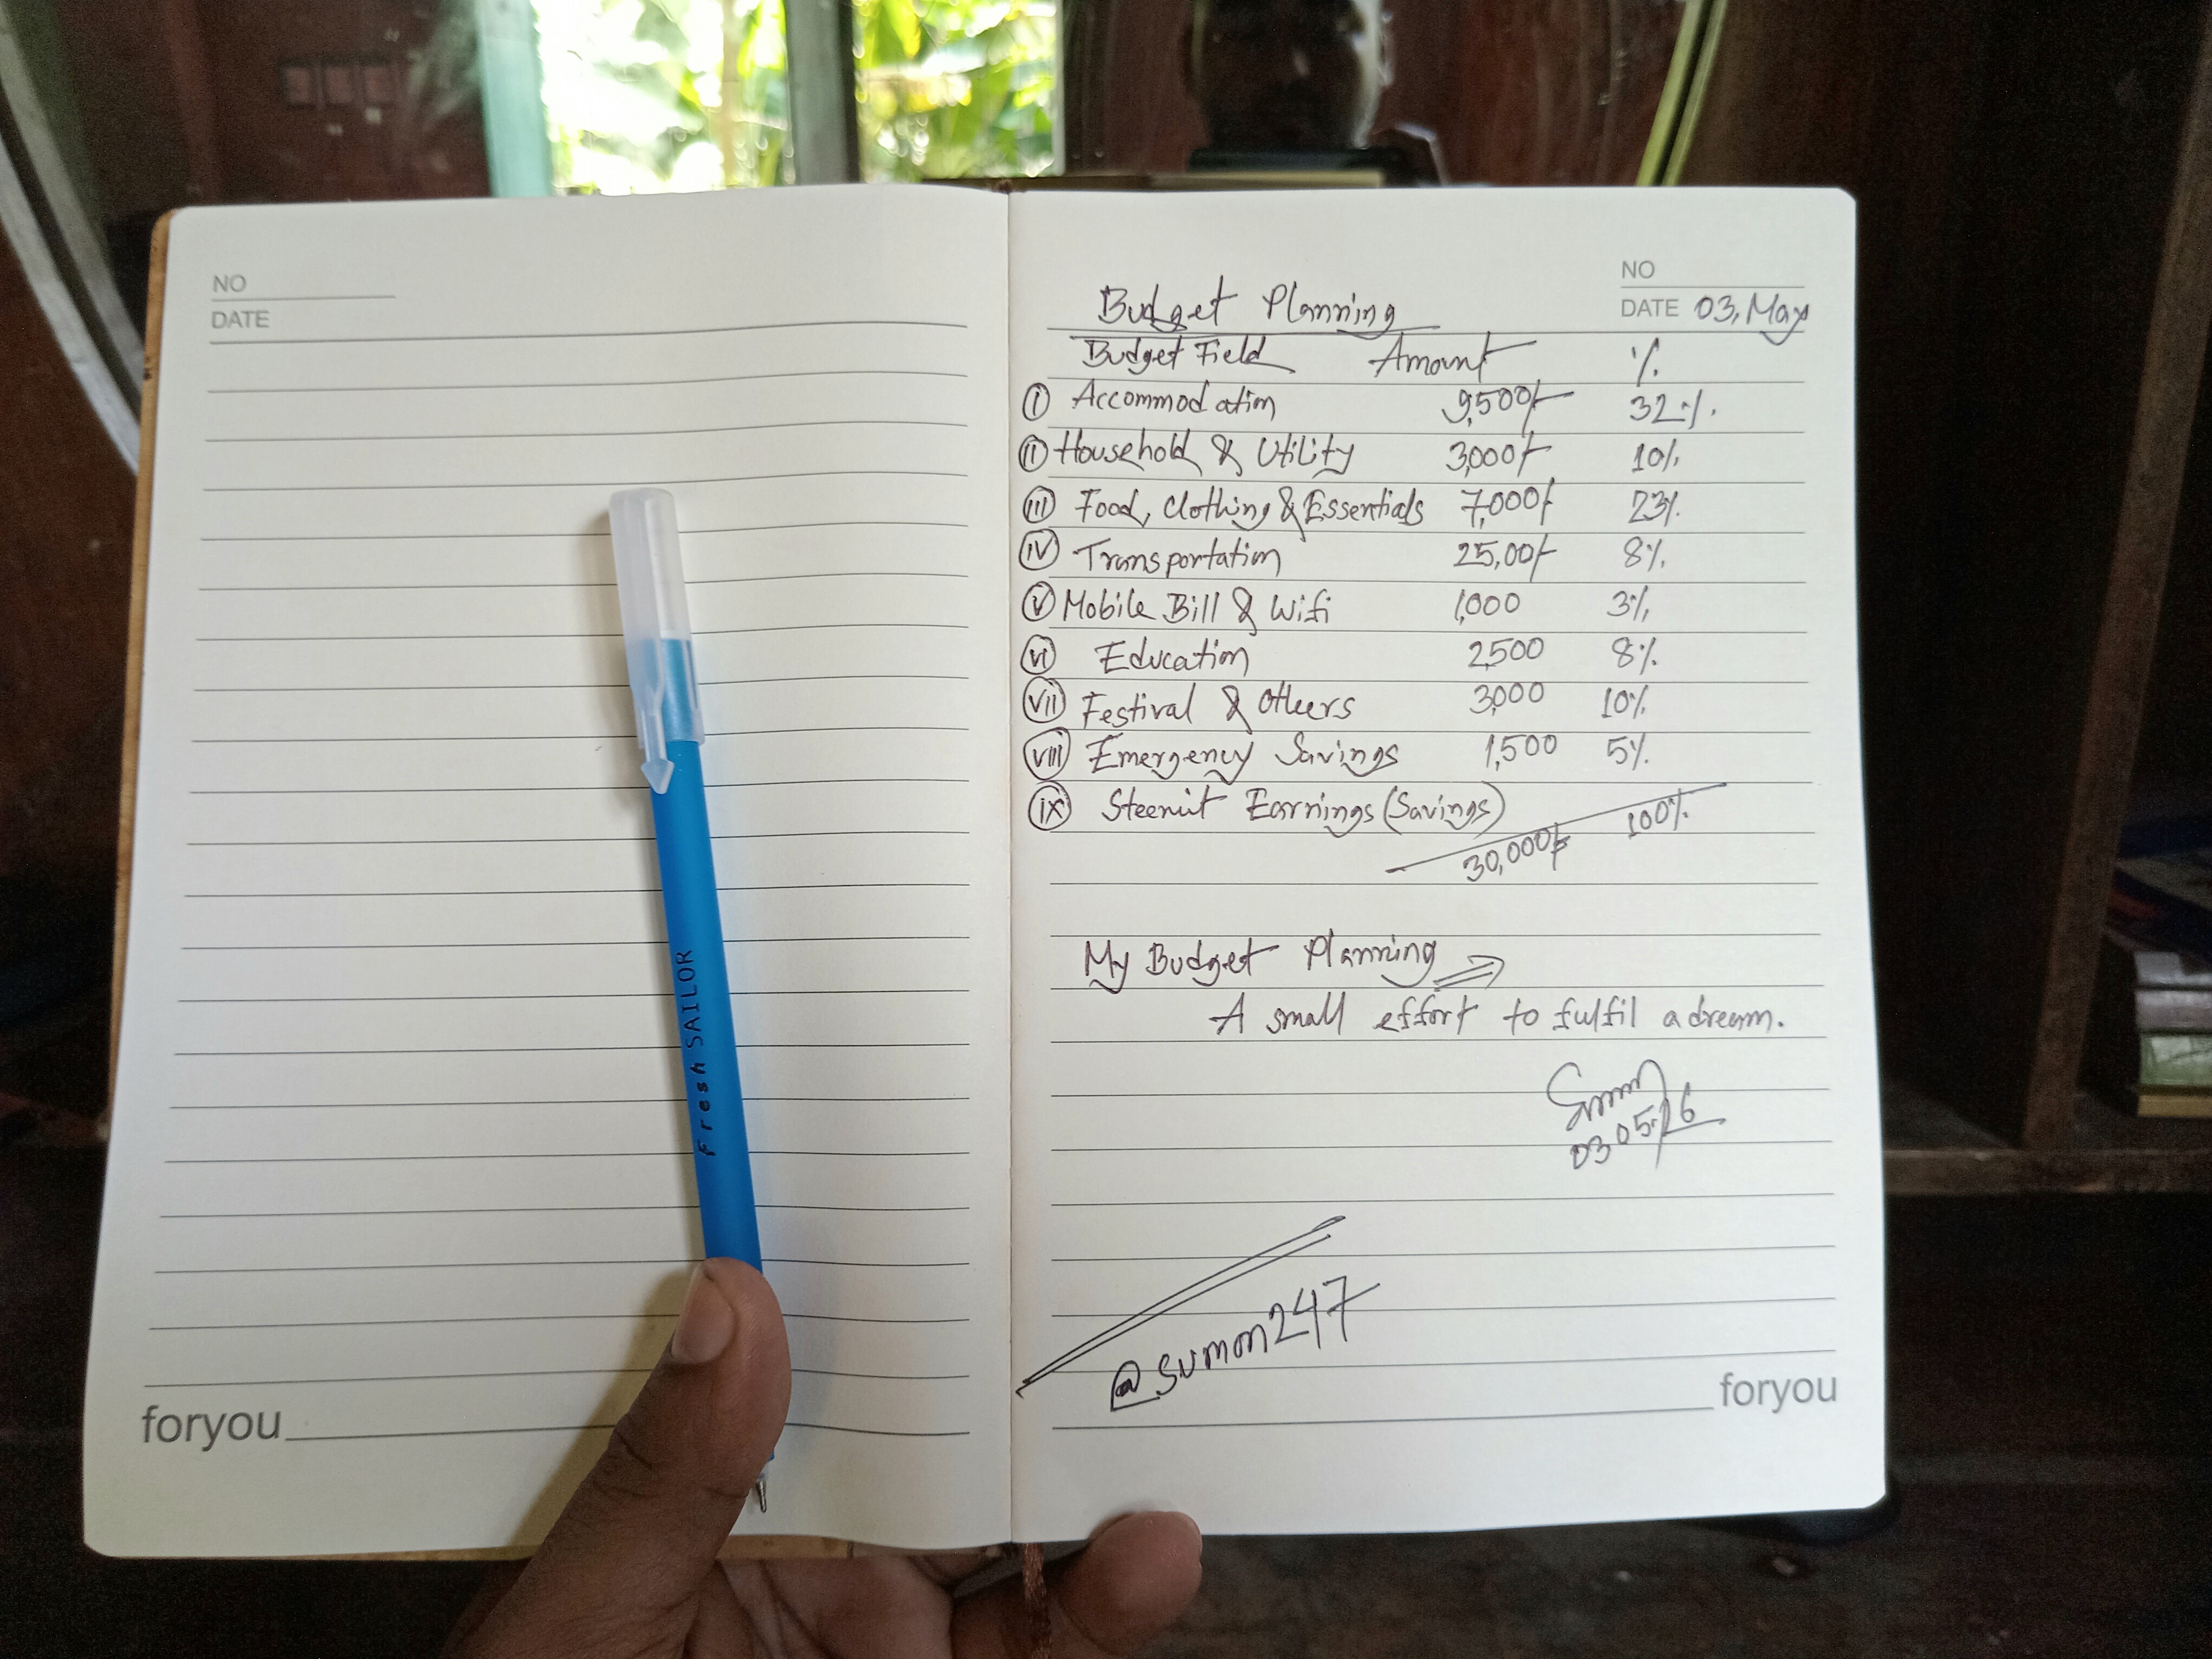 NO
DATE
foryou
Fresh SAILOR
NO
Budget Planning
DATE 03, May
Budget Field Amount %
(i) Accommodation 9,500/- 32%.
(ii) Household & Utility 3,000/- 10%
(iii) Food, Clothing & Essentials 7,000/- 23%
(iv) Transportation 25,00/- 8%
(v) Mobile Bill & Wifi 1,000 3%
(vi) Education 2500 8%
(vii) Festival & Others 3,000 10%
(viii) Emergency Savings 1,500 5%
(ix) Steemit Earnings (Savings)
30,000/- 100%
My Budget Planning ⇒
A small effort to fulfil a dream.
@sumon247
foryou